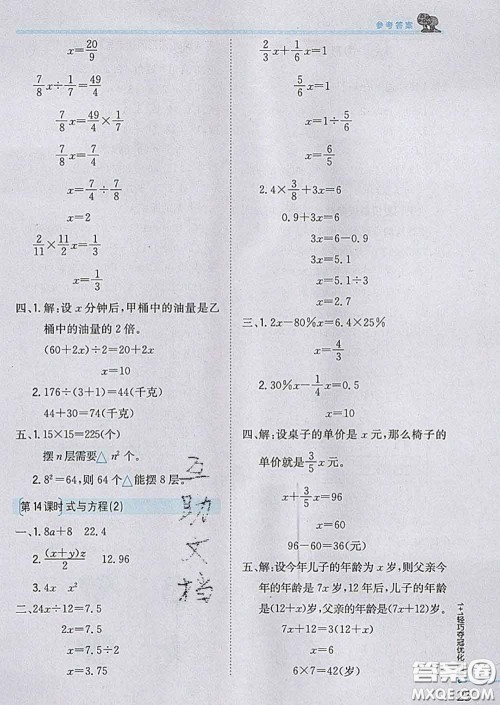 参考答案
x=20/9
7/8x÷1/7=49/4
7/8x=49/4×1/7
7/8x=7/4
x=7/4÷7/8
x=2
2/11×11/2x=1/3
x=1/3
四、1.解:设x分钟后,甲桶中的油量是乙
桶中的油量的2倍。
(60+2x)÷2=20+2x
x=10
2.176÷(3+1)=44(千克)
44+30=74(千克)
五、1.15×15=225(个)
摆n层需要△n²个。
2.8²=64,则64个△能摆8层。
第14课时 式与方程(2)
一、1.8a+8 22.4
2.(x+y)z/2 12.96
3.4x x²
二、24x÷12=7.5
2x=7.5
x=3.75
2/3x+1/6x=1
5/6x=1
x=1÷5/6
x=6/5
2.4×3/8+3x=6
0.9+3x=6
3x=6-0.9
3x=5.1
x=5.1÷3
x=1.7
三、1.2x-80%x=6.4×25%
x=4/3
2.30%x-1/4x=0.5
x=10
四、解:设桌子的单价是x元,那么椅子的
单价是3/5x元。
x+3/5x=96
x=60
96-60=36(元)
五、解:设今年儿子的年龄为x岁,则父亲今
年的年龄是7x岁,12年后,儿子的年龄
为(x+12)岁,父亲的年龄为(7x+12)岁。
7x+12=3(12+x)
x=6
6×7=42(岁)
互助文档
1+1轻巧夺冠优化
答案圈
MXQE.COM